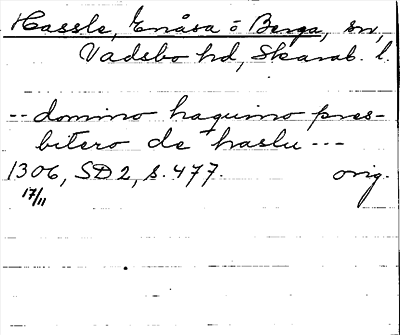 Hassle, Enåsa o Berga, sn,
Vadsbo hd, Skarab. l.
-- domino haquino pres-
bitero de haslu ---
1306, SD 2, s. 477. orig.
17/11